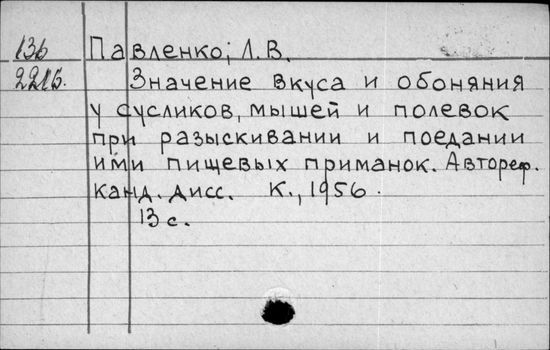 136 Павленко, Л.В.
221б. Значение вкуса и обоняния
у сусликов, мышей и полевок
при разыскивании и поедании
ими пищевых приманок. Автореф.
канд. дисс. К., 1956.
13 с.